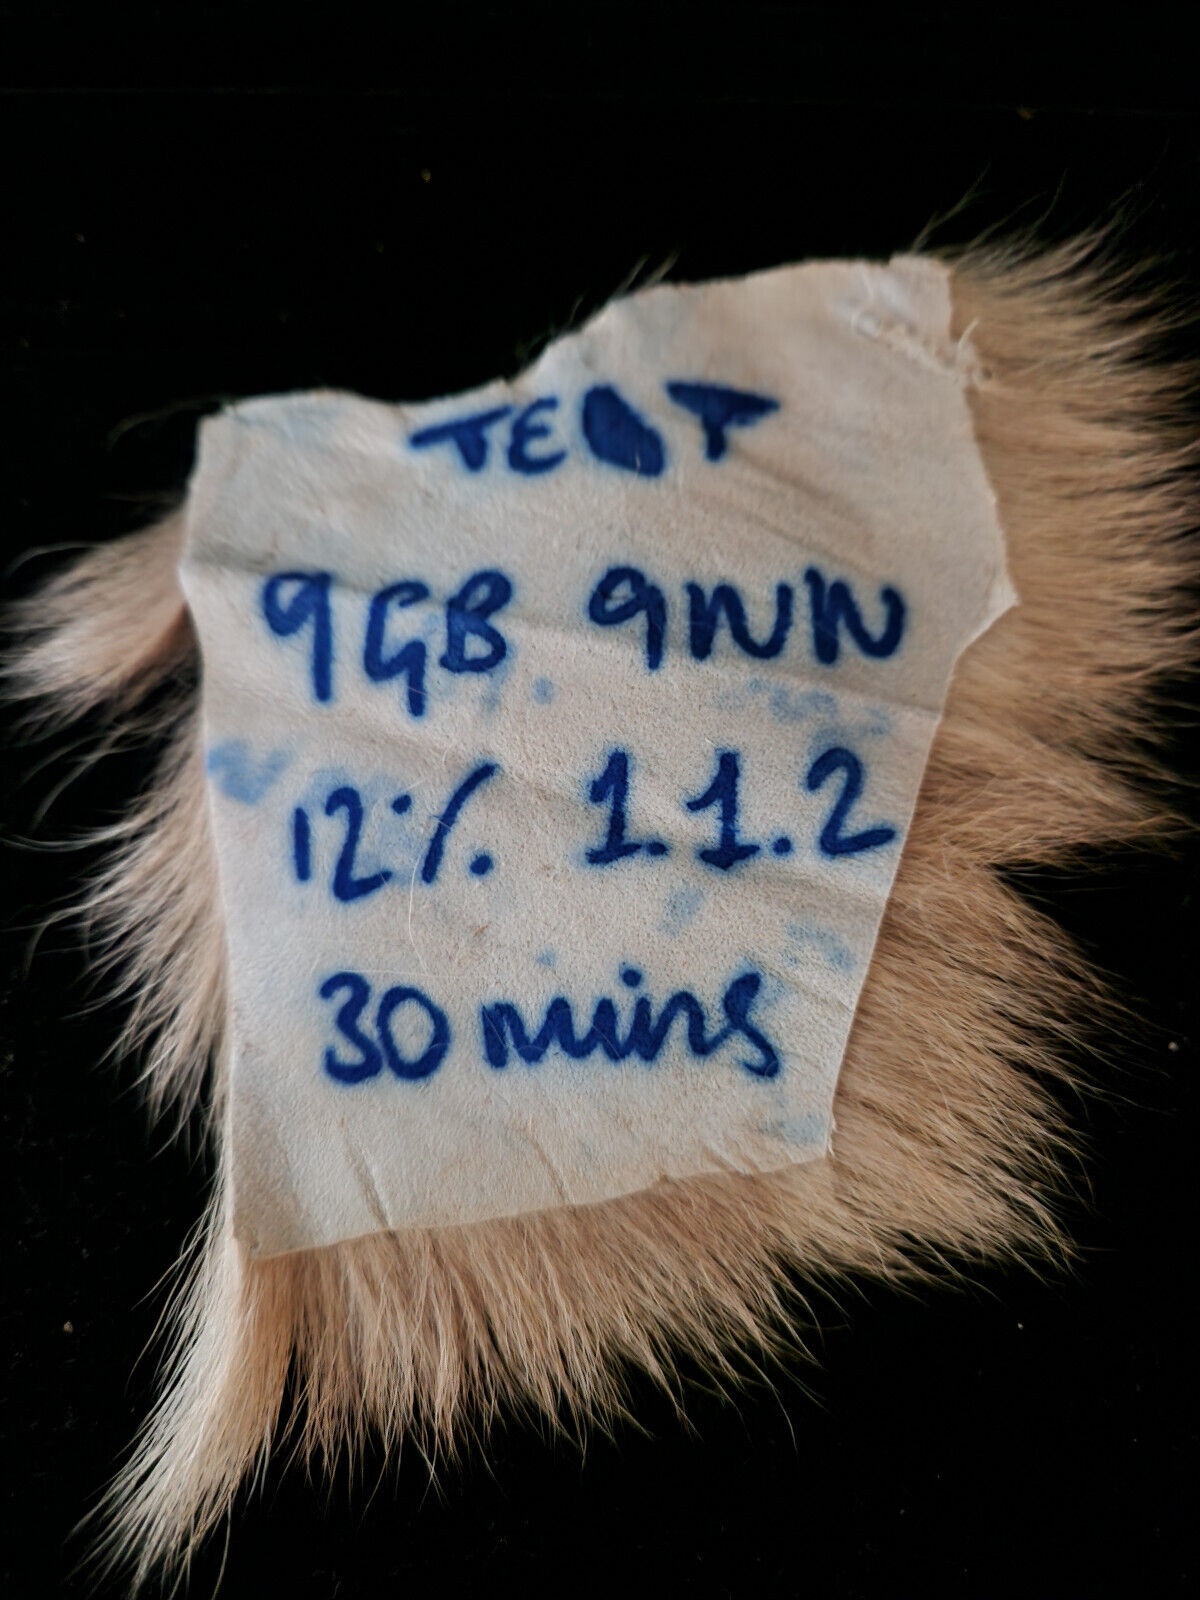 TEST
9GB 9NN
12% 1.1.2
30 mins